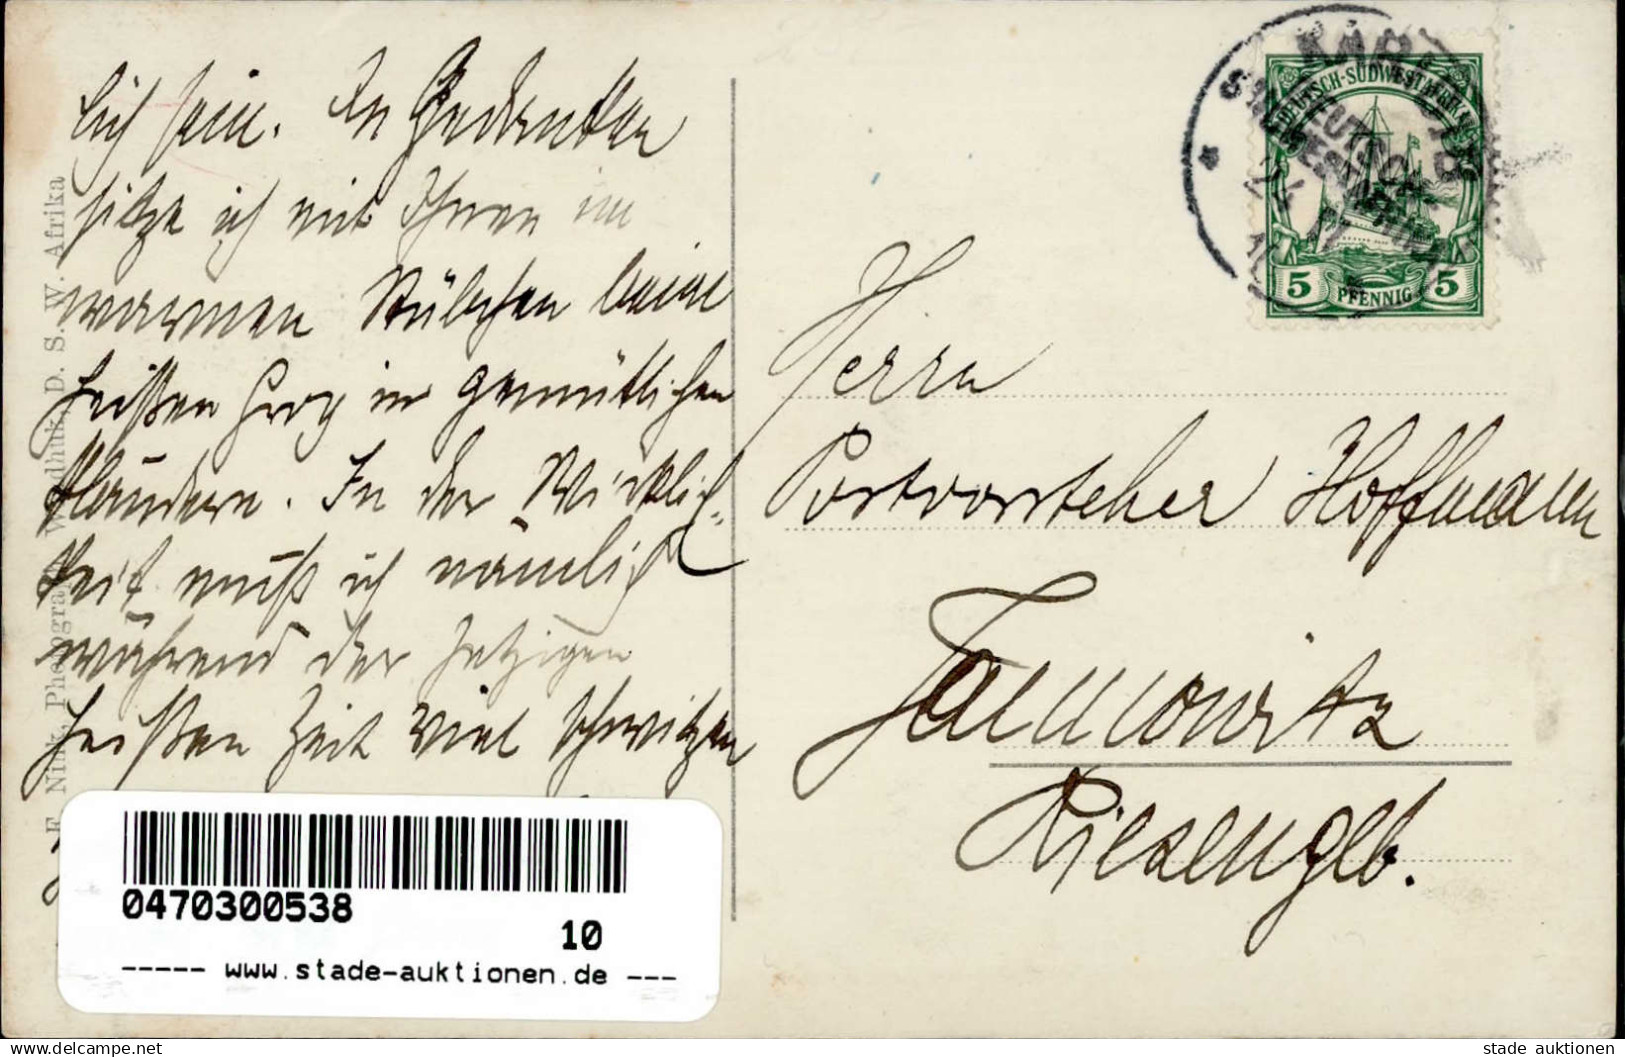 lich sein. In Gedanken
sitze ich mit Ihnen im
warmen Stübchen beim
heißen Grog in gemütlichen
Plaudern. In der Wirklich-
keit muß ich nämlich
während der jetzigen
heißen Zeit viel schwitzen
F. Nink, Photograph, Windhuk, D. S. W. Afrika
DEUTSCH-SÜDWESTAFRIKA
5 PFENNIG 5
Herrn
Postvorsteher Hoffmann
Jannowitz
Riesengeb.
0470300538
10
----- www.stade-auktionen.de ---
www.delcampe.net
stade auktionen